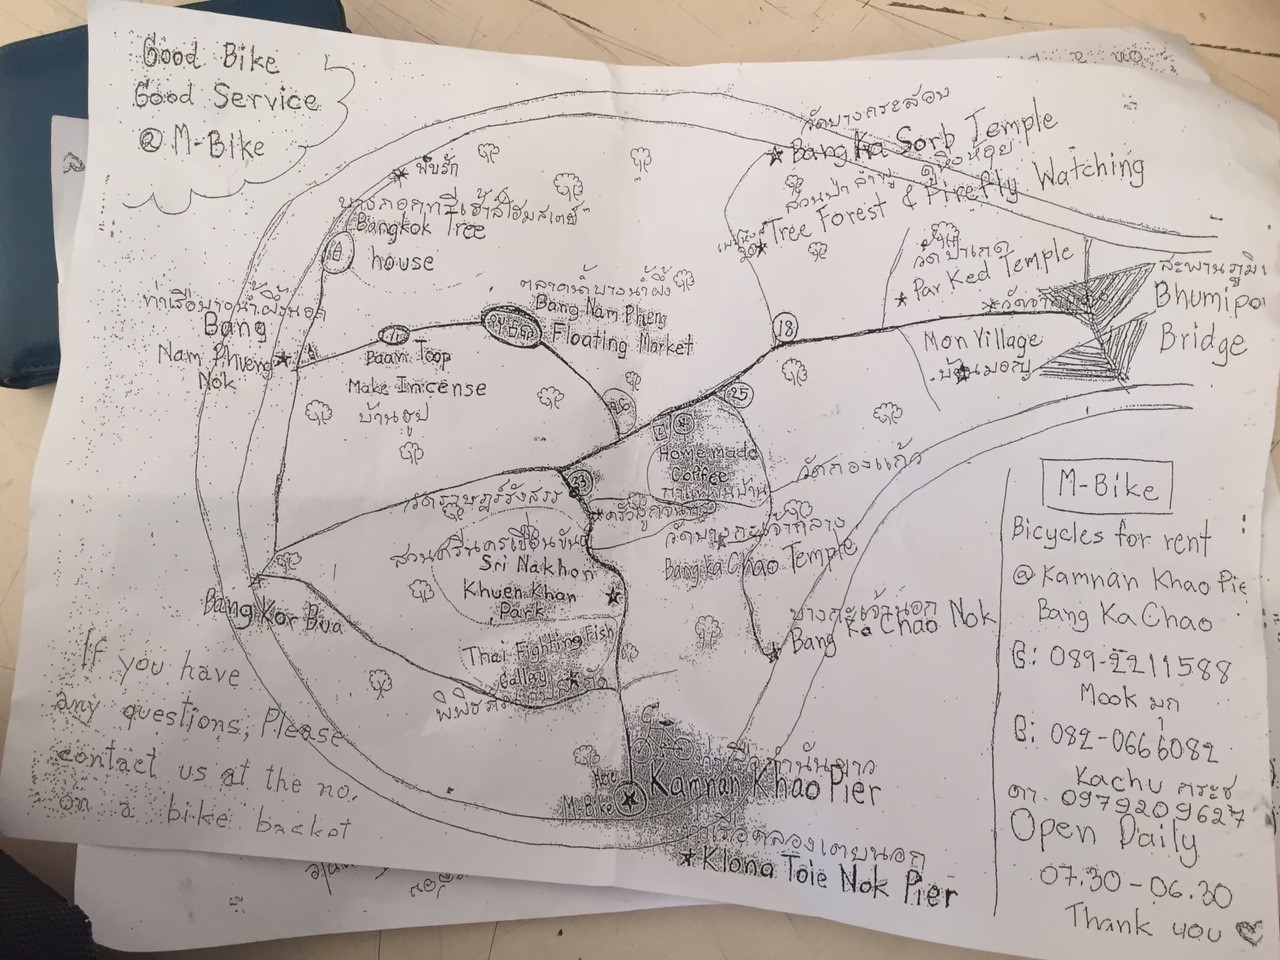 Good Bike
Good Service
@ M-Bike
วัดบางกระสอบ
Bang Ka Sorb Temple
สวนป่าลำพู ดูหิ่งห้อย
Tree Forest & Firefly Watching
บางกอกทรีเฮ้าส์โฮมสเตย์
Bangkok Tree
house
ท่าเรือบางน้ำผึ้งนอก
Bang
Nam Phueng
Nok
ตลาดน้ำบางน้ำผึ้ง
Bang Nam Pheng
Floating Market
Baan Toop
Make Inicense
บ้านธูป
วัดป่าเกด
Par Ked Temple
สะพานภูมิ
Bhumipo
Bridge
Mon Village
บ้านมอญ
18
25
33
Home made
Coffee
วัดกองแก้ว
วัดราษฎร์รังสรร
สวนศรีนครเขื่อนขันธ์
Sri Nakhon
Khuen Khan
Park
วัดบางกะเจ้ากลาง
Bang Ka Chao Temple
บางกะเจ้านอก
Bang Ka Chao Nok
Bang Kor Bua
Thai Fighting Fish
Gallery
Here
M-Bike
ท่าเรือกำนันขาว
Kamnan Khao Pier
ท่าเรือคลองเตยนอก
Klong Toie Nok Pier
If you have
any questions, Please
contact us at the no.
on a bike backet
M-Bike
Bicycles for rent
@ Kamnan Khao Pie
Bang Ka Chao
: 089-2211588
Mook มุก
: 082-0666082
Kachu
0979209627
Open Daily
07.30-06.30
Thank you